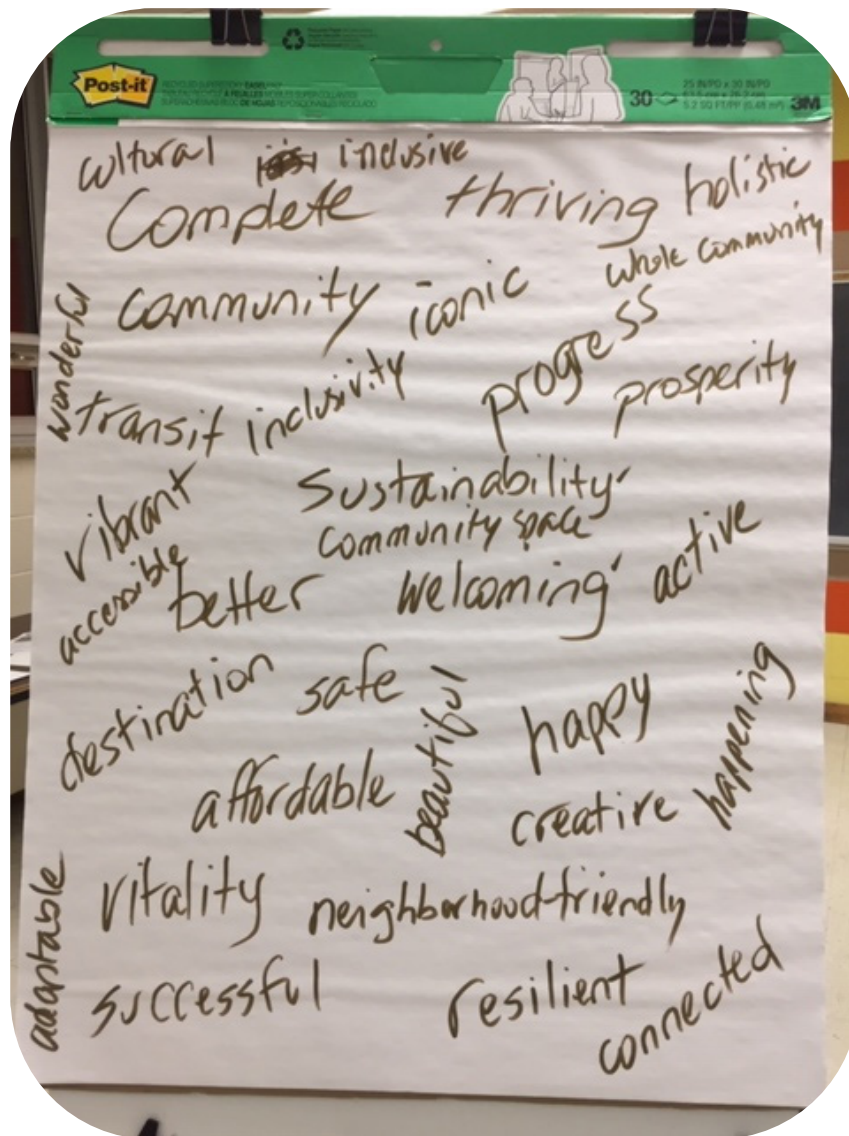 Post-it
30
25 IN/PO x 30 IN/PO
3M
cultural inclusive
Complete thriving holistic
whole community
community iconic
wonderful
progress
transit inclusivity prosperity
vibrant
Sustainability
community space
accessible better welcoming active
destination safe
beautiful
happy
happening
affordable
creative
vitality neighborhood-friendly
adaptable
successful resilient
connected